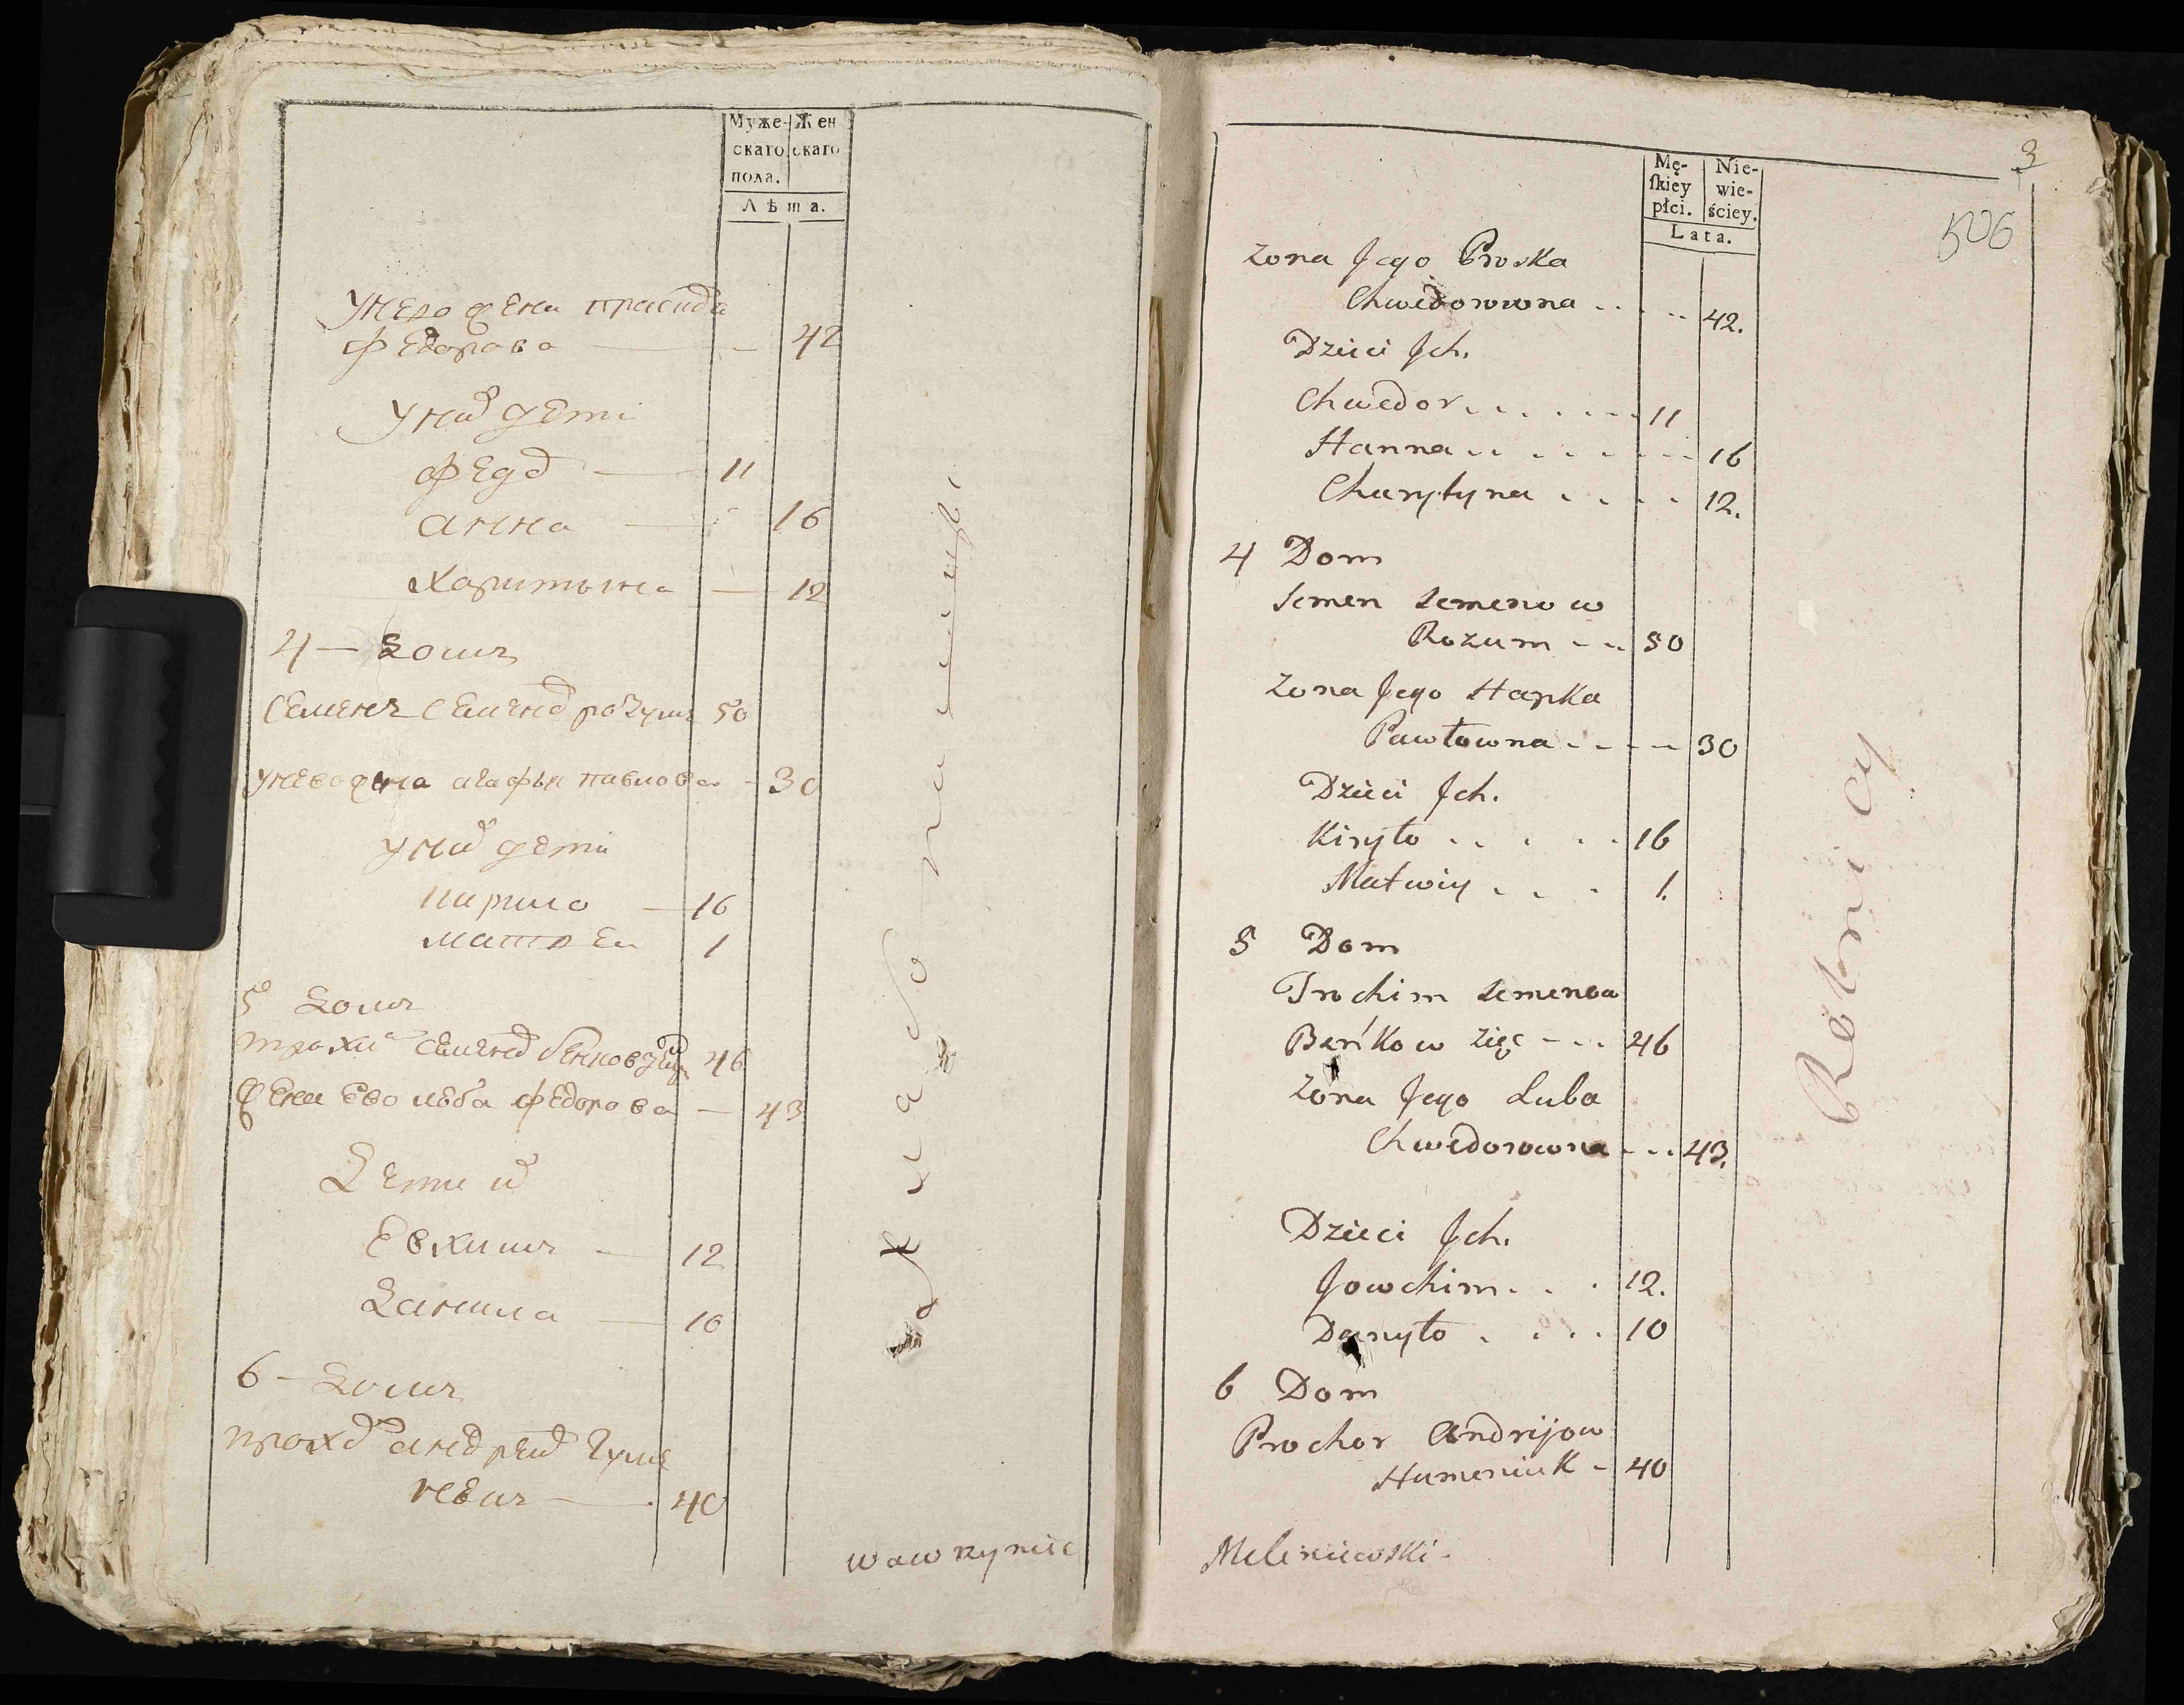 Муже-
скаго
пола.
Жен
скаго
Лѣта.
Унего жена праскида
Федорова — — 42
Униⷯ дети
Федоⷬ — 11
анна — 16
Харитына — 12
4 — Домъ
Семенъ Семеноⷡ розумъ 50
унево жена агафья павлова — 30
униⷯ дети
кирило — 16
матвеи 1
5 Домъ
трахиⷨ Семеноⷡ бенковзять 46
Жена Ево люба Федорова — 43
Дети иⷯ
Евхимъ — 12
Данила — 10
6 — Домъ
прохоⷬ андреиⷡ гуме
40
wawrzyniec
3
506
Mę-
ſkiey
płci.
Nie-
wie-
ściey.
Lata.
Zona Jego Proska
Chwedorowna .. .. 42.
Dzieci Jch.
Chwedor . . . . . . 11
Hanna . . . . . . 16
Charytyna . . . . 12.
4 Dom
Semen Semenow
Rozum - .. 50
Zona Jego Hapka
Pawłowna . - - - 30
Dzieci Jch.
Kiryło . . . . . 16
Matwiy . . . 1.
5 Dom
Trochim Semenow
Beńkow Zięc - - . 46
Zona Jego Luba
Chwedorowna - . . 43.
Dzieci Jch.
Jowchim . . . 12.
Danyło . . . . 10
6 Dom
Prochor Andrijow
Humeniuk - 40
Rolnicy
Meleniewski.